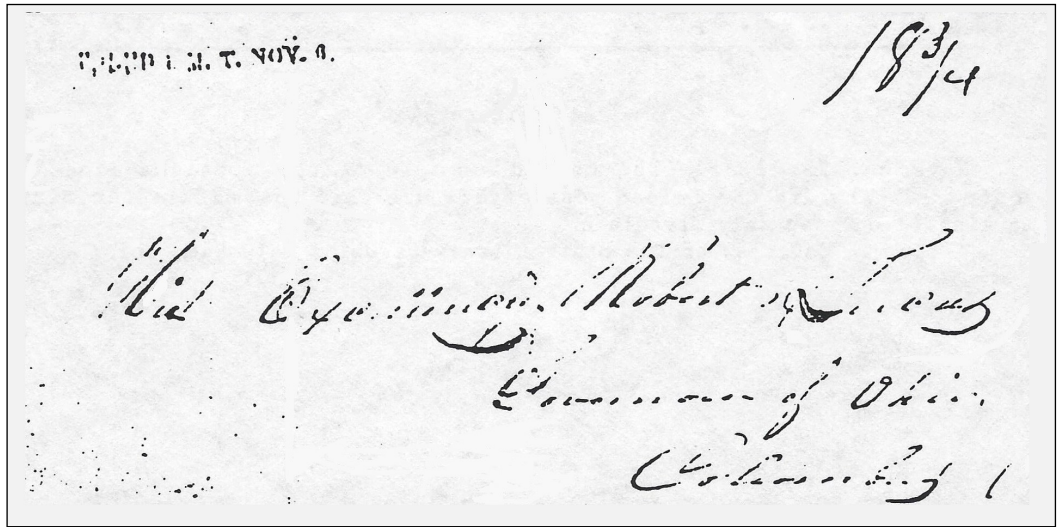 M. T. NOV. 6.
18 3/4
His Excellency Robert Lucas
Governor of Ohio.
Columbus